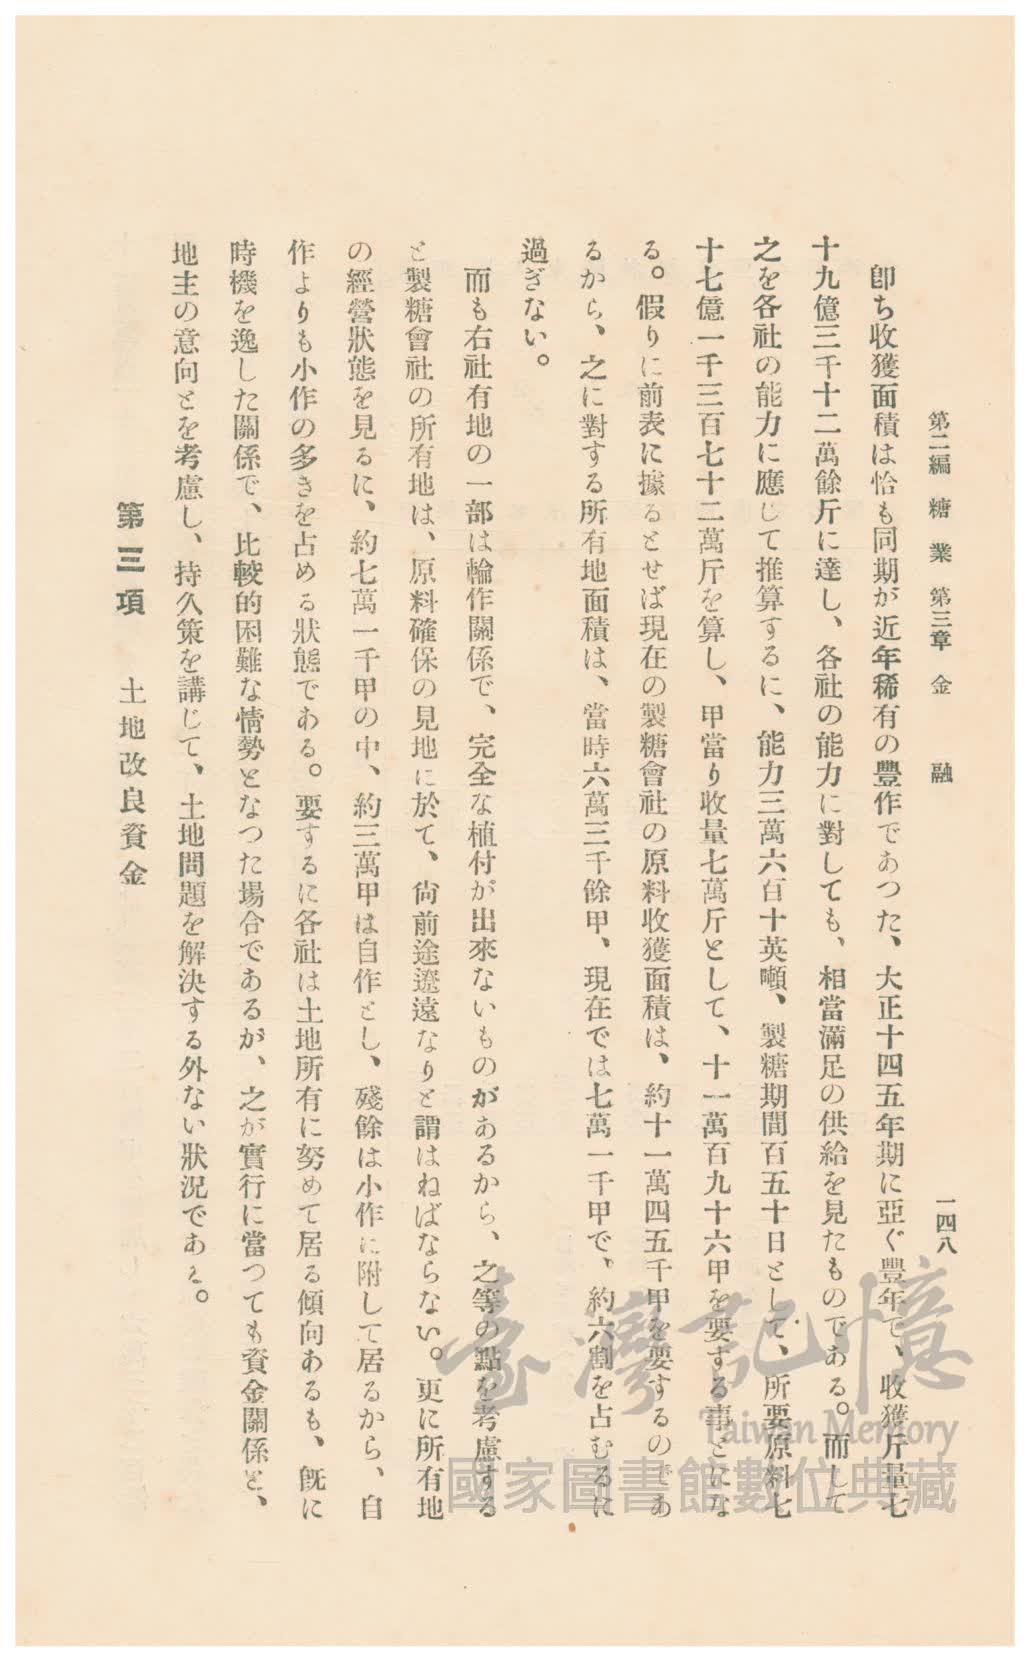 第二編 糖業 第三章 金融
一四八
卽ち收獲面積は恰も同期が近年稀有の豐作であつた、大正十四五年期に亞ぐ豐年で、收獲斤量七
十九億三千十二萬餘斤に達し、各社の能力に對しても、相當滿足の供給を見たものである。而して
之を各社の能力に應じて推算するに、能力三萬六百十英噸、製糖期間百五十日として、所要原料七
十七億一千三百七十二萬斤を算し、甲當り收量七萬斤として、十一萬百九十六甲を要する事とにな
る。假りに前表に據るとせば現在の製糖會社の原料收獲面積は、約十一萬四五千甲を要するのであ
るから、之に對する所有地面積は、當時六萬三千餘甲、現在では七萬一千甲で、約六割を占むるに
過ぎない。
而も右社有地の一部は輪作關係で、完全な植付が出來ないものがあるから、之等の點を考慮する
と製糖會社の所有地は、原料確保の見地に於て、尙前途遼遠なりと謂はねばならない。更に所有地
の經營狀態を見るに、約七萬一千甲の中、約三萬甲は自作とし、殘餘は小作に附して居るから、自
作よりも小作の多きを占める狀態である。要するに各社は土地所有に努めて居る傾向あるも、旣に
時機を逸した關係で、比較的困難な情勢となつた場合であるが、之が實行に當つても資金關係と、
地主の意向とを考慮し、持久策を講じて、土地問題を解決する外ない狀況である。
第三項 土地改良資金
臺灣記憶
Taiwan Memory
國家圖書館數位典藏